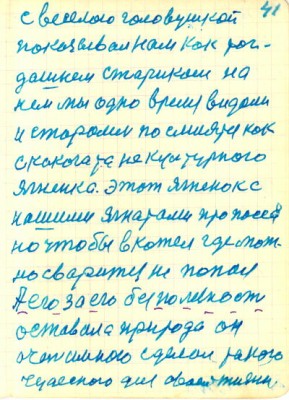 41
с веселого головушкой
показывал нам как рог-
дашнем стариком на
нем мы одно время видали
и старалис посмиятся как
с какога та некультурного
ягненка. этот ягненок с
нашими ягнатами про
но чтобы в котел где мож-
но сварится не попал
А его за его бесполезност
оставила природа он
сделал такого
чудесного для своей жизни